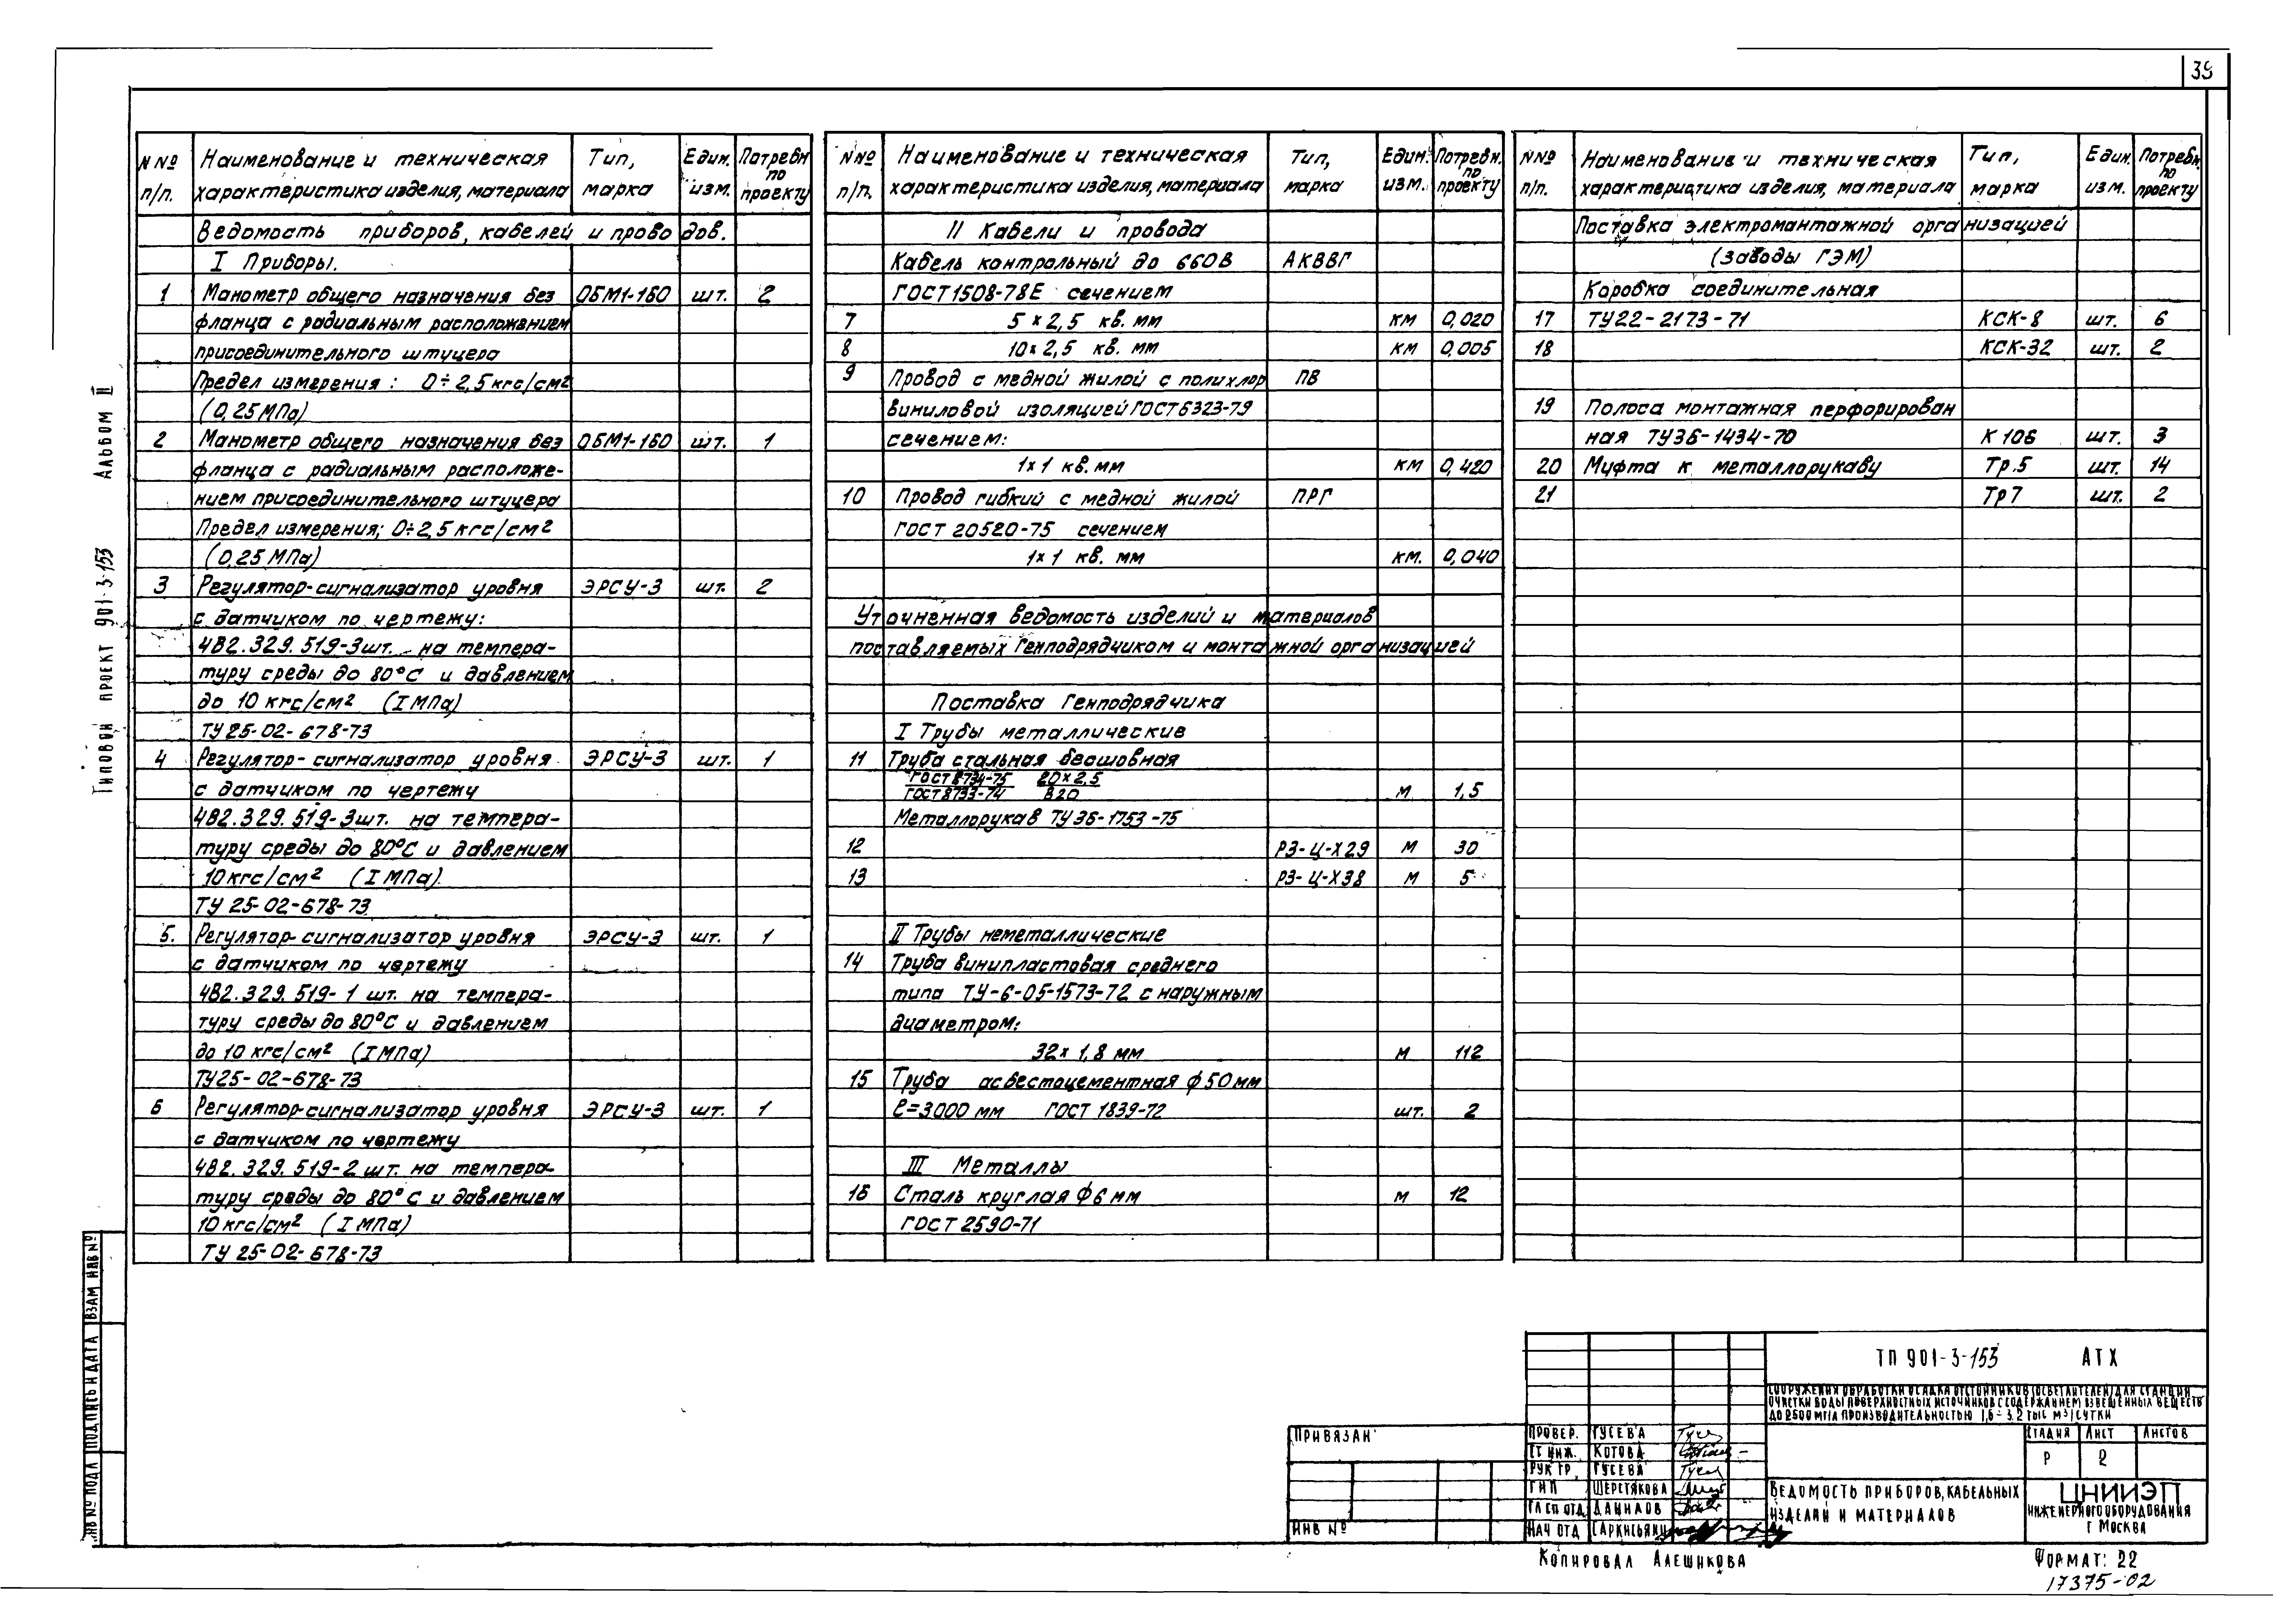 39
Альбом II
Типовой проект 901-3-153
N№ п/п. Наименование и техническая характеристика изделия, материала Тип, марка Един. изм. Потребн. по проекту
Ведомость приборов, кабелей и проводов.
I Приборы.
1 Манометр общего назначения без ОБМ1-160 шт. 2
фланца с радиальным расположением
присоединительного штуцера
Предел измерения: 0÷2,5кгс/см²
(0,25МПа)
2 Манометр общего назначения без ОБМ1-160 шт. 1
фланца с радиальным расположе-
нием присоединительного штуцера
Предел измерения; 0÷2,5кгс/см²
(0,25МПа)
3 Регулятор-сигнализатор уровня ЭРСУ-3 шт. 2
с датчиком по чертежу:
4В2.329.519-3шт. на темпера-
туру среды до 80°С и давлением
до 10 кгс/см² (I МПа)
ТУ25-02-678-73
4 Регулятор-сигнализатор уровня ЭРСУ-3 шт. 1
с датчиком по чертежу
4В2.329.519-3шт. на темпера-
туру среды до 80°С и давлением
10кгс/см² (I МПа)
ТУ 25-02-678-73
5. Регулятор-сигнализатор уровня ЭРСУ-3 шт. 1
с датчиком по чертежу
4В2.329.519-1 шт. на темпера-
туру среды до 80°С и давлением
до 10 кгс/см² (I МПа)
ТУ25-02-678-73
6 Регулятор-сигнализатор уровня ЭРСУ-3 шт. 1
с датчиком по чертежу
4В2.329.519-2 шт. на темпера-
туру среды до 80°С и давлением
10кгс/см² (I МПа)
ТУ 25-02-678-73
N№ п/п. Наименование и техническая характеристика изделия, материала Тип, марка Един. изм. Потребн. по проекту
II Кабели и провода
Кабель контрольный до 660В АКВВГ
ГОСТ1508-78Е сечением
7 5×2,5 кв. мм км 0,020
8 10×2,5 кв. мм км 0,005
9 Провод с медной жилой с полихлор ПВ
виниловой изоляцией ГОСТ6323-79
сечением:
1×1 кв.мм км 0,420
10 Провод гибкий с медной жилой ПРГ
ГОСТ 20520-75 сечением
1×1 кв. мм км. 0,040
Уточненная ведомость изделий и материалов
поставляемых Генподрядчиком и монтажной организацией
Поставка Генподрядчика
I Трубы металлические
11 Труба стальная бесшовная
ГОСТ8734-75 20×2,5
ГОСТ8733-74 В20 м 1,5
Металлорукав ТУ36-1753-75
12 РЗ-Ц-Х29 м 30
13 РЗ-Ц-Х38 м 5
II Трубы неметаллические
14 Труба винипластовая среднего
типа ТУ-6-05-1573-72 с наружным
диаметром:
32×1,8 мм м 112
15 Труба асбестоцементная ф50мм
ℓ=3000 мм ГОСТ 1839-72 шт. 2
III Металлы
16 Сталь круглая ф6мм м 12
ГОСТ 2590-71
N№ п/п. Наименование и техническая характеристика изделия, материала Тип, марка Един. изм. Потребн. по проекту
Поставка электромантажной организацией
(заводы ГЭМ)
Коробка соединительная
17 ТУ22-2173-71 КСК-8 шт. 6
18 КСК-32 шт. 2
19 Полоса монтажная перфорирован
ная ТУ36-1434-70 К 106 шт. 3
20 Муфта к металлорукаву Тр.5 шт. 14
21 Тр7 шт. 2
ИНВ № ПОДЛ ПОДПИСЬ И ДАТА ВЗАМ ИНВ №
ПРИВЯЗАН
ИНВ №
ПРОВЕР. ГУСЕВА
СТ ИНЖ. КОТОВА
РУК ГР. ГУСЕВА
ГИП ШЕРСТЯКОВА
ГЛ СП ОТД ДАНИЛОВ
НАЧ ОТД САРКИСЬЯНЦ
ТП 901-3-153 АТХ
СООРУЖЕНИЯ ОБРАБОТКИ ОСАДКА ОТСТОЙНИКОВ (ОСВЕТЛИТЕЛЕЙ) ДЛЯ СТАНЦИИ
ОЧИСТКИ ВОДЫ ПОВЕРХНОСТНЫХ ИСТОЧНИКОВ С СОДЕРЖАНИЕМ ВЗВЕШЕННЫХ ВЕЩЕСТВ
ДО 2500 МГ/Л ПРОИЗВОДИТЕЛЬНОСТЬЮ 1,6-3.2 ТЫС М³/СУТКИ
СТАДИЯ ЛИСТ ЛИСТОВ
Р 2
ВЕДОМОСТЬ ПРИБОРОВ, КАБЕЛЬНЫХ
ИЗДЕЛИЙ И МАТЕРИАЛОВ
ЦНИИЭП
ИНЖЕНЕРНОГО ОБОРУДОВАНИЯ
Г МОСКВА
КОПИРОВАЛ АЛЕШИКОВА
ФОРМАТ: 22
17375-02